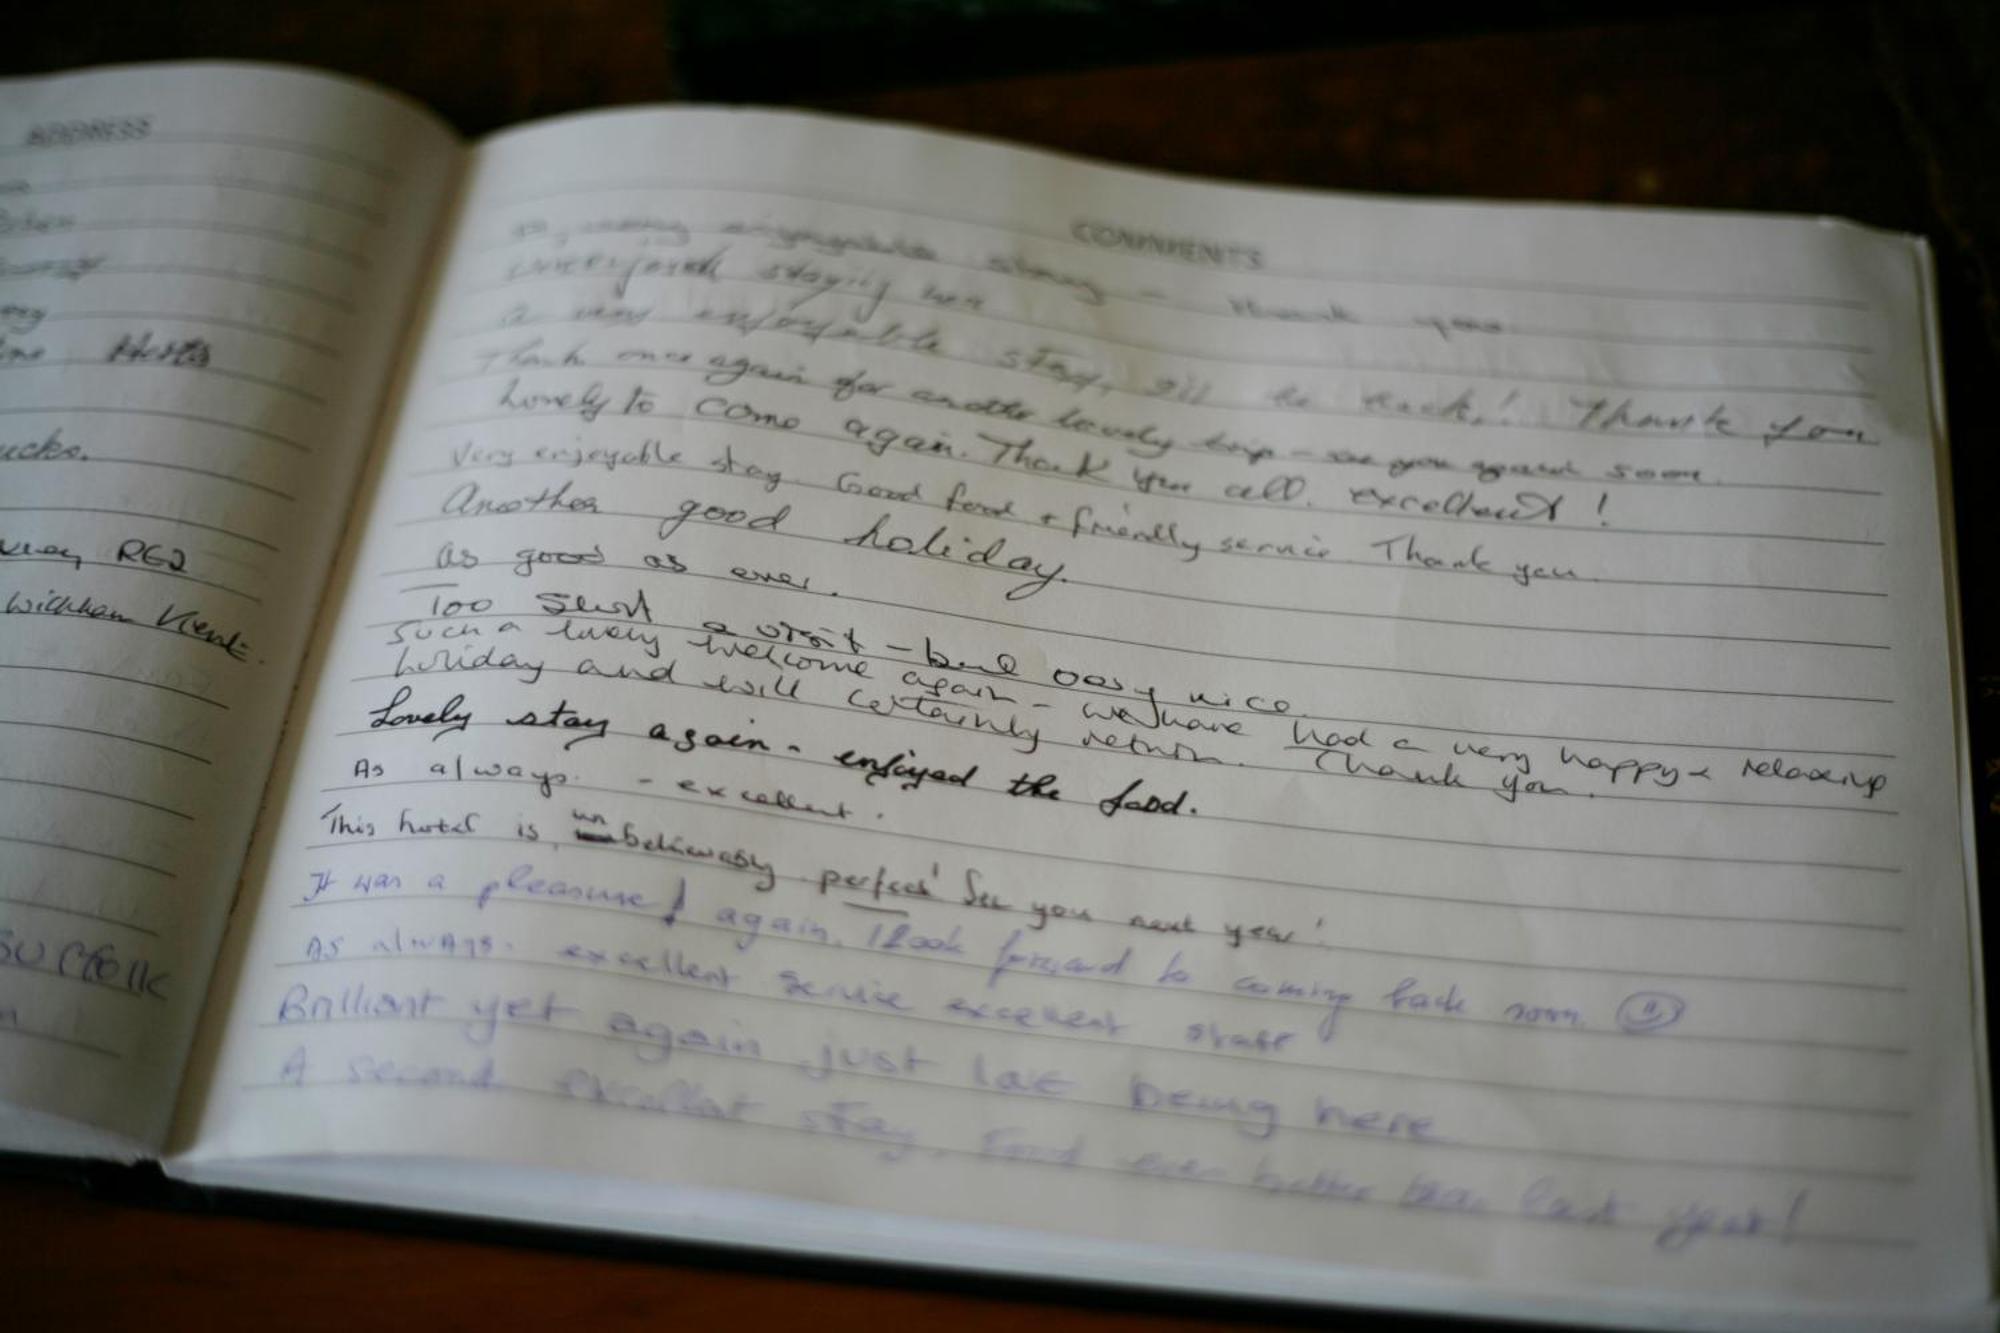 ADDRESS
Herts
ucks.
RG2
Wickham Kent.
SUFFOLK
COMMENTS
enjoyable stay - thank you
staying here
a very enjoyable stay, will be back! Thank you
Thank once again for another lovely trip - see you again soon.
Lovely to come again. Thank you all. excellent!
Very enjoyable stay. Good food + friendly service. Thank you
Another good holiday.
as good as ever.
Too short a visit - but very nice
Such a lovely welcome again - we have had a very happy & relaxing
holiday and will certainly return. Thank you.
Lovely stay again - enjoyed the food.
As always - excellent.
This hotel is unbelievably perfect! See you next year!
It was a pleasure! again. I look forward to coming back soon
As always. excellent service excellent staff
Brilliant yet again just love being here
A second excellent stay. Food even better than last year!